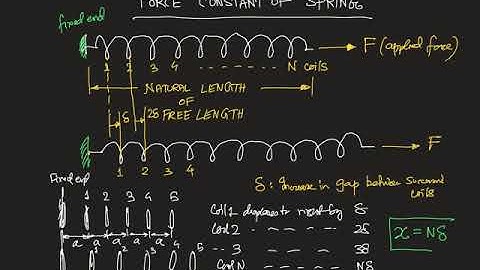 FORCE CONSTANT OF SPRINGS
fixed end
F (applied force)
1 2 3 4 N coils
NATURAL LENGTH
OF
δ 2δ FREE LENGTH
F
1 2 3 4
Fixed end
δ : Increase in gap between
coils
1 2 3 4 5
Coil 1 displaces to right by δ
Coil 2 2δ
3 3δ
Coil N Nδ
x = Nδ
a a a a a
1 2 3 4 5